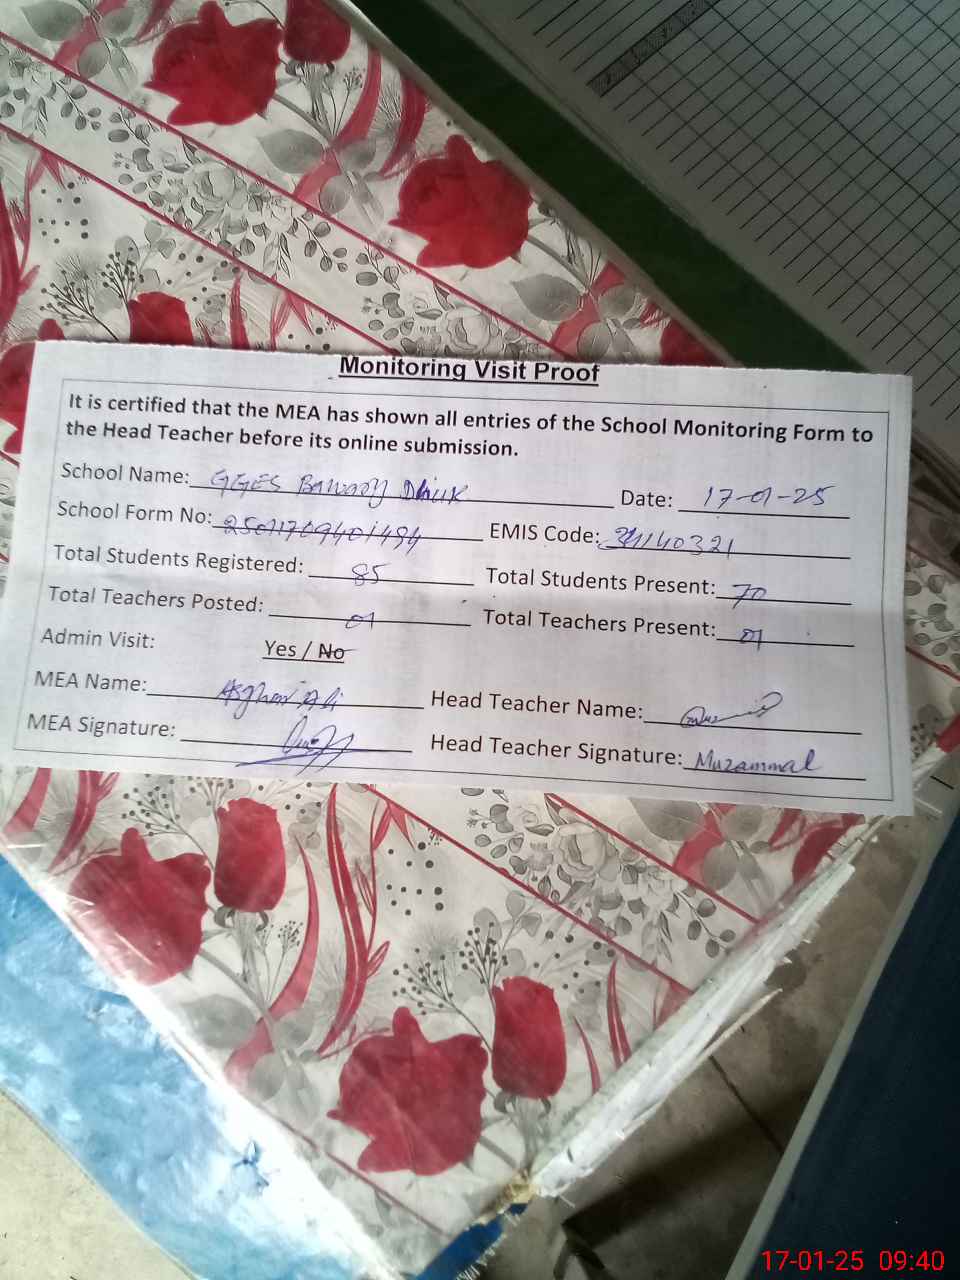 Monitoring Visit Proof
It is certified that the MEA has shown all entries of the School Monitoring Form to
the Head Teacher before its online submission.
School Name: GGES Date: 17-01-25
School Form No: EMIS Code:
Total Students Registered: 85 Total Students Present: 70
Total Teachers Posted: 01 Total Teachers Present: 01
Admin Visit: Yes / No
MEA Name: Asghar Ali Head Teacher Name:
MEA Signature: Head Teacher Signature: Muzammal
17-01-25 09:40